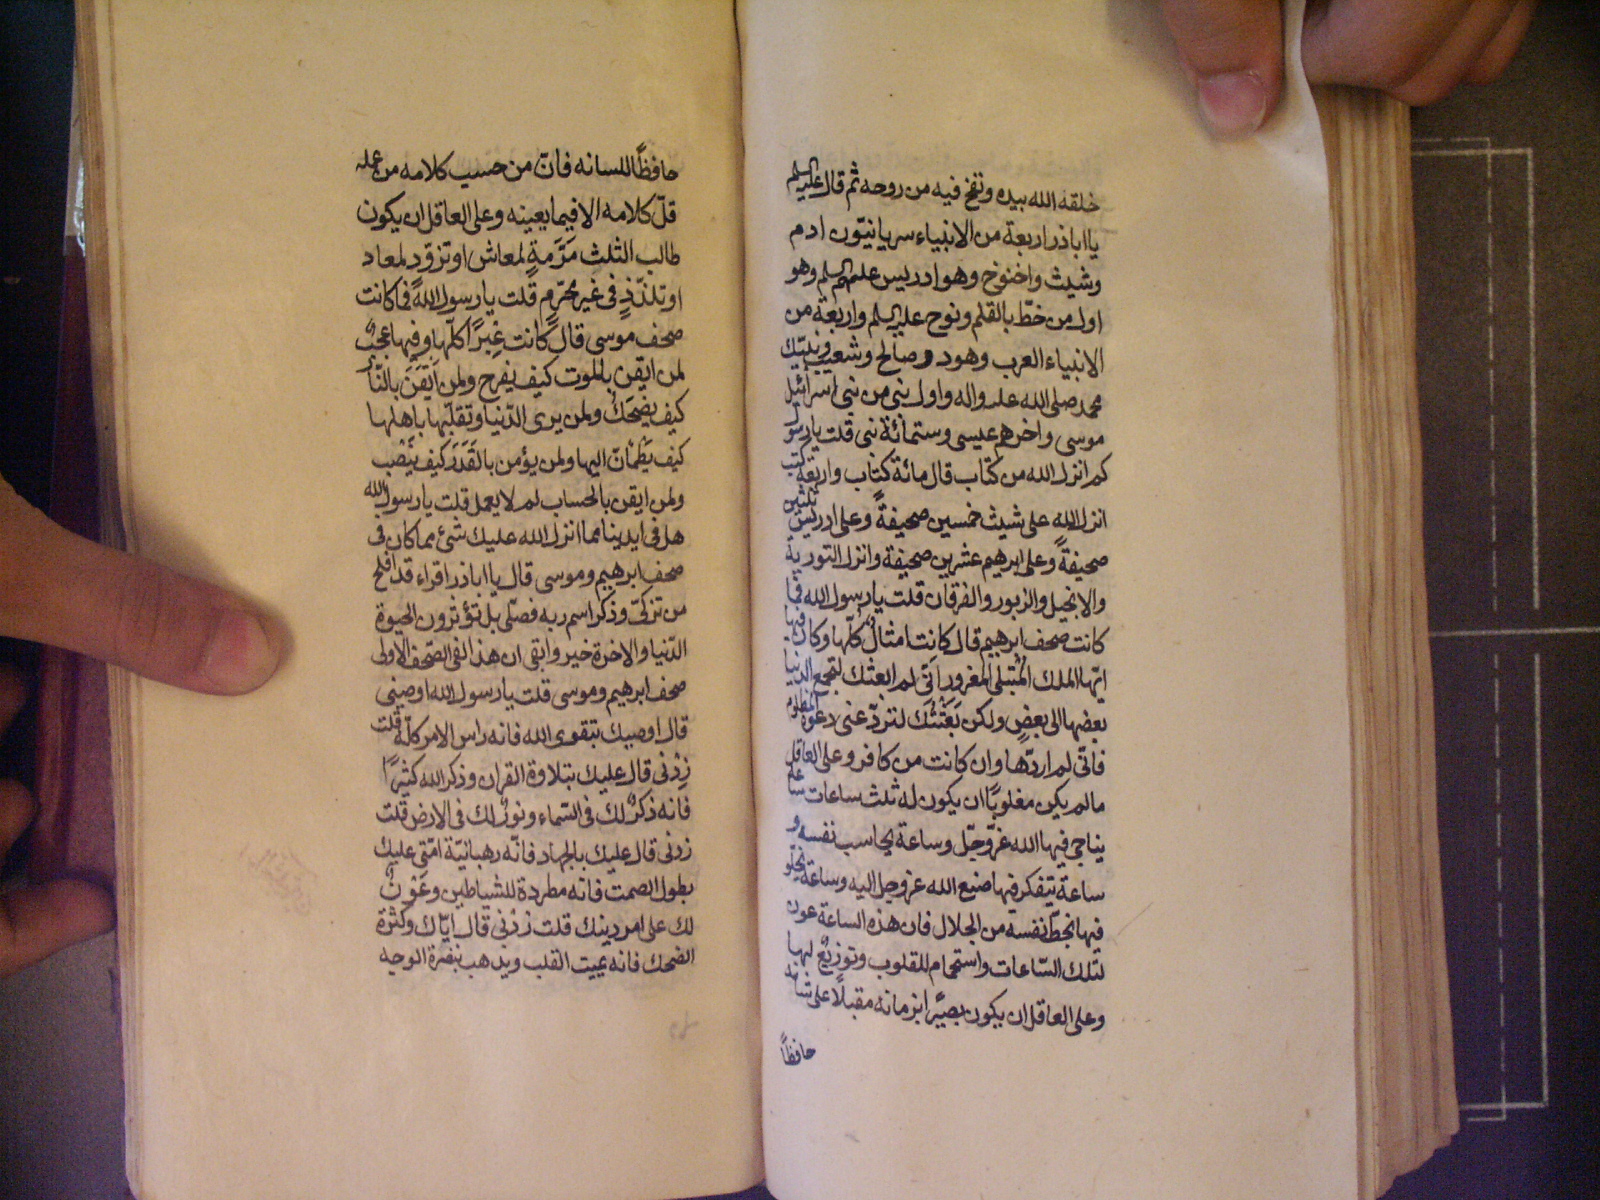 خلقه الله بيده ونفخ فيه من روحه ثم قال عليه السلم
يا اباذر اربعة من الانبياء سريانيّون ادم
وشيث واخنوخ وهو ادريس عليهم السلم وهو
اول من خطّ بالقلم ونوح عليه السلم واربعة من
الانبياء العرب وهود وصالح وشعيب ونبيّك
محمد صلى الله عليه واله واول نبى من بنى اسرائيل
موسى واخرهم عيسى وستمائة نبى قلت يا رسول
كم انزل الله من كتاب قال مائة كتاب واربعة كتب
انزل الله على شيث خمسين صحيفةً وعلى ادريس ثلثين
صحيفةً وعلى ابرهيم عشرين صحيفة وانزل التورية
والانجيل والزبور والفرقان قلت يا رسول الله فما
كانت صحف ابرهيم قال كانت امثالٌ كلّها وكان فيها
ايّها الملك المُبتلى المغرور اِنّى لم ابعثك لتجمع الدنيا
بعضها الى بعضٍ ولكن بَعَثْتُك لتردّ عنى دعوة المظلوم
فانّى لم اردّها وان كانت من كافر وعلى العاقل
مالم يكن مغلوبًا ان يكون له ثلث ساعات ساعة
يناجى فيها الله عزّوجلّ وساعة يحاسب نفسه و
ساعة يتفكر فيها صنع الله عزوجل اليه وساعة يخلو
فيها بحظّ نفسه من الحلال فان هذه الساعة عون
لتلك السّاعات واستجمام للقلوب وتوزيعٌ لها
وعلى العاقل ان يكون بصيرًا بزمانه مقبلًا على شانه
حافظًا
حافظًا للسانه فانّ من حسب كلامه من عمله
قلّ كلامه الا فيما يعينه وعلى العاقل ان يكون
طالب الثلث مَرَّمةٍ لمعاش او تزوّدٍ لمعاد
او تلذّذٍ فى غير محرّم قلت يا رسول الله فما كانت
صحف موسى قال كانت عِبَرًا كلّها وفيها عجبٌ
لمن ايقن بالموت كيف يفرح ولمن اَيْقَنَ بالنّار
كيف يضحَكُ ولمن يرى الدّنيا وتقلّبها باهلها
كيف يَطْمَانّ اليها ولمن يؤمن بالقَدَرَ كيف ينْصَب
ولمن ايقن بالحساب لم لا يعمل قلت يا رسول الله
هل فى ايدينا مما انزل الله عليك شئ مما كان فى
صحف ابرهيم وموسى قال يا اباذر اقراء قد افلح
من تزكّى وذكر اسم ربه فصلّى بل تؤثرون الحيوة
الدّنيا والاخرة خير وابقى ان هذا لفى الصّحف الاولى
صحف ابرهيم وموسى قلت يا رسول الله اوصنى
قال اوصيك بتقوى الله فانه راس الامر كلّه قلت
زِدْنى قال عليك بتلاوة القران وذكر الله كثيرًا
فانه ذكرٌ لك فى السّماء ونورٌ لك فى الارض قلت
زدنى قال عليك بالجهاد فانّه رهبانيّة امّتى عليك
بطول الصمت فانه مطردة للشياطين وعَوْنٌ
لك على امر دينك قلت زدْنى قال ايّاك وكثرة
الضحك فانه يميت القلب ويذهب بنضرة الوجه